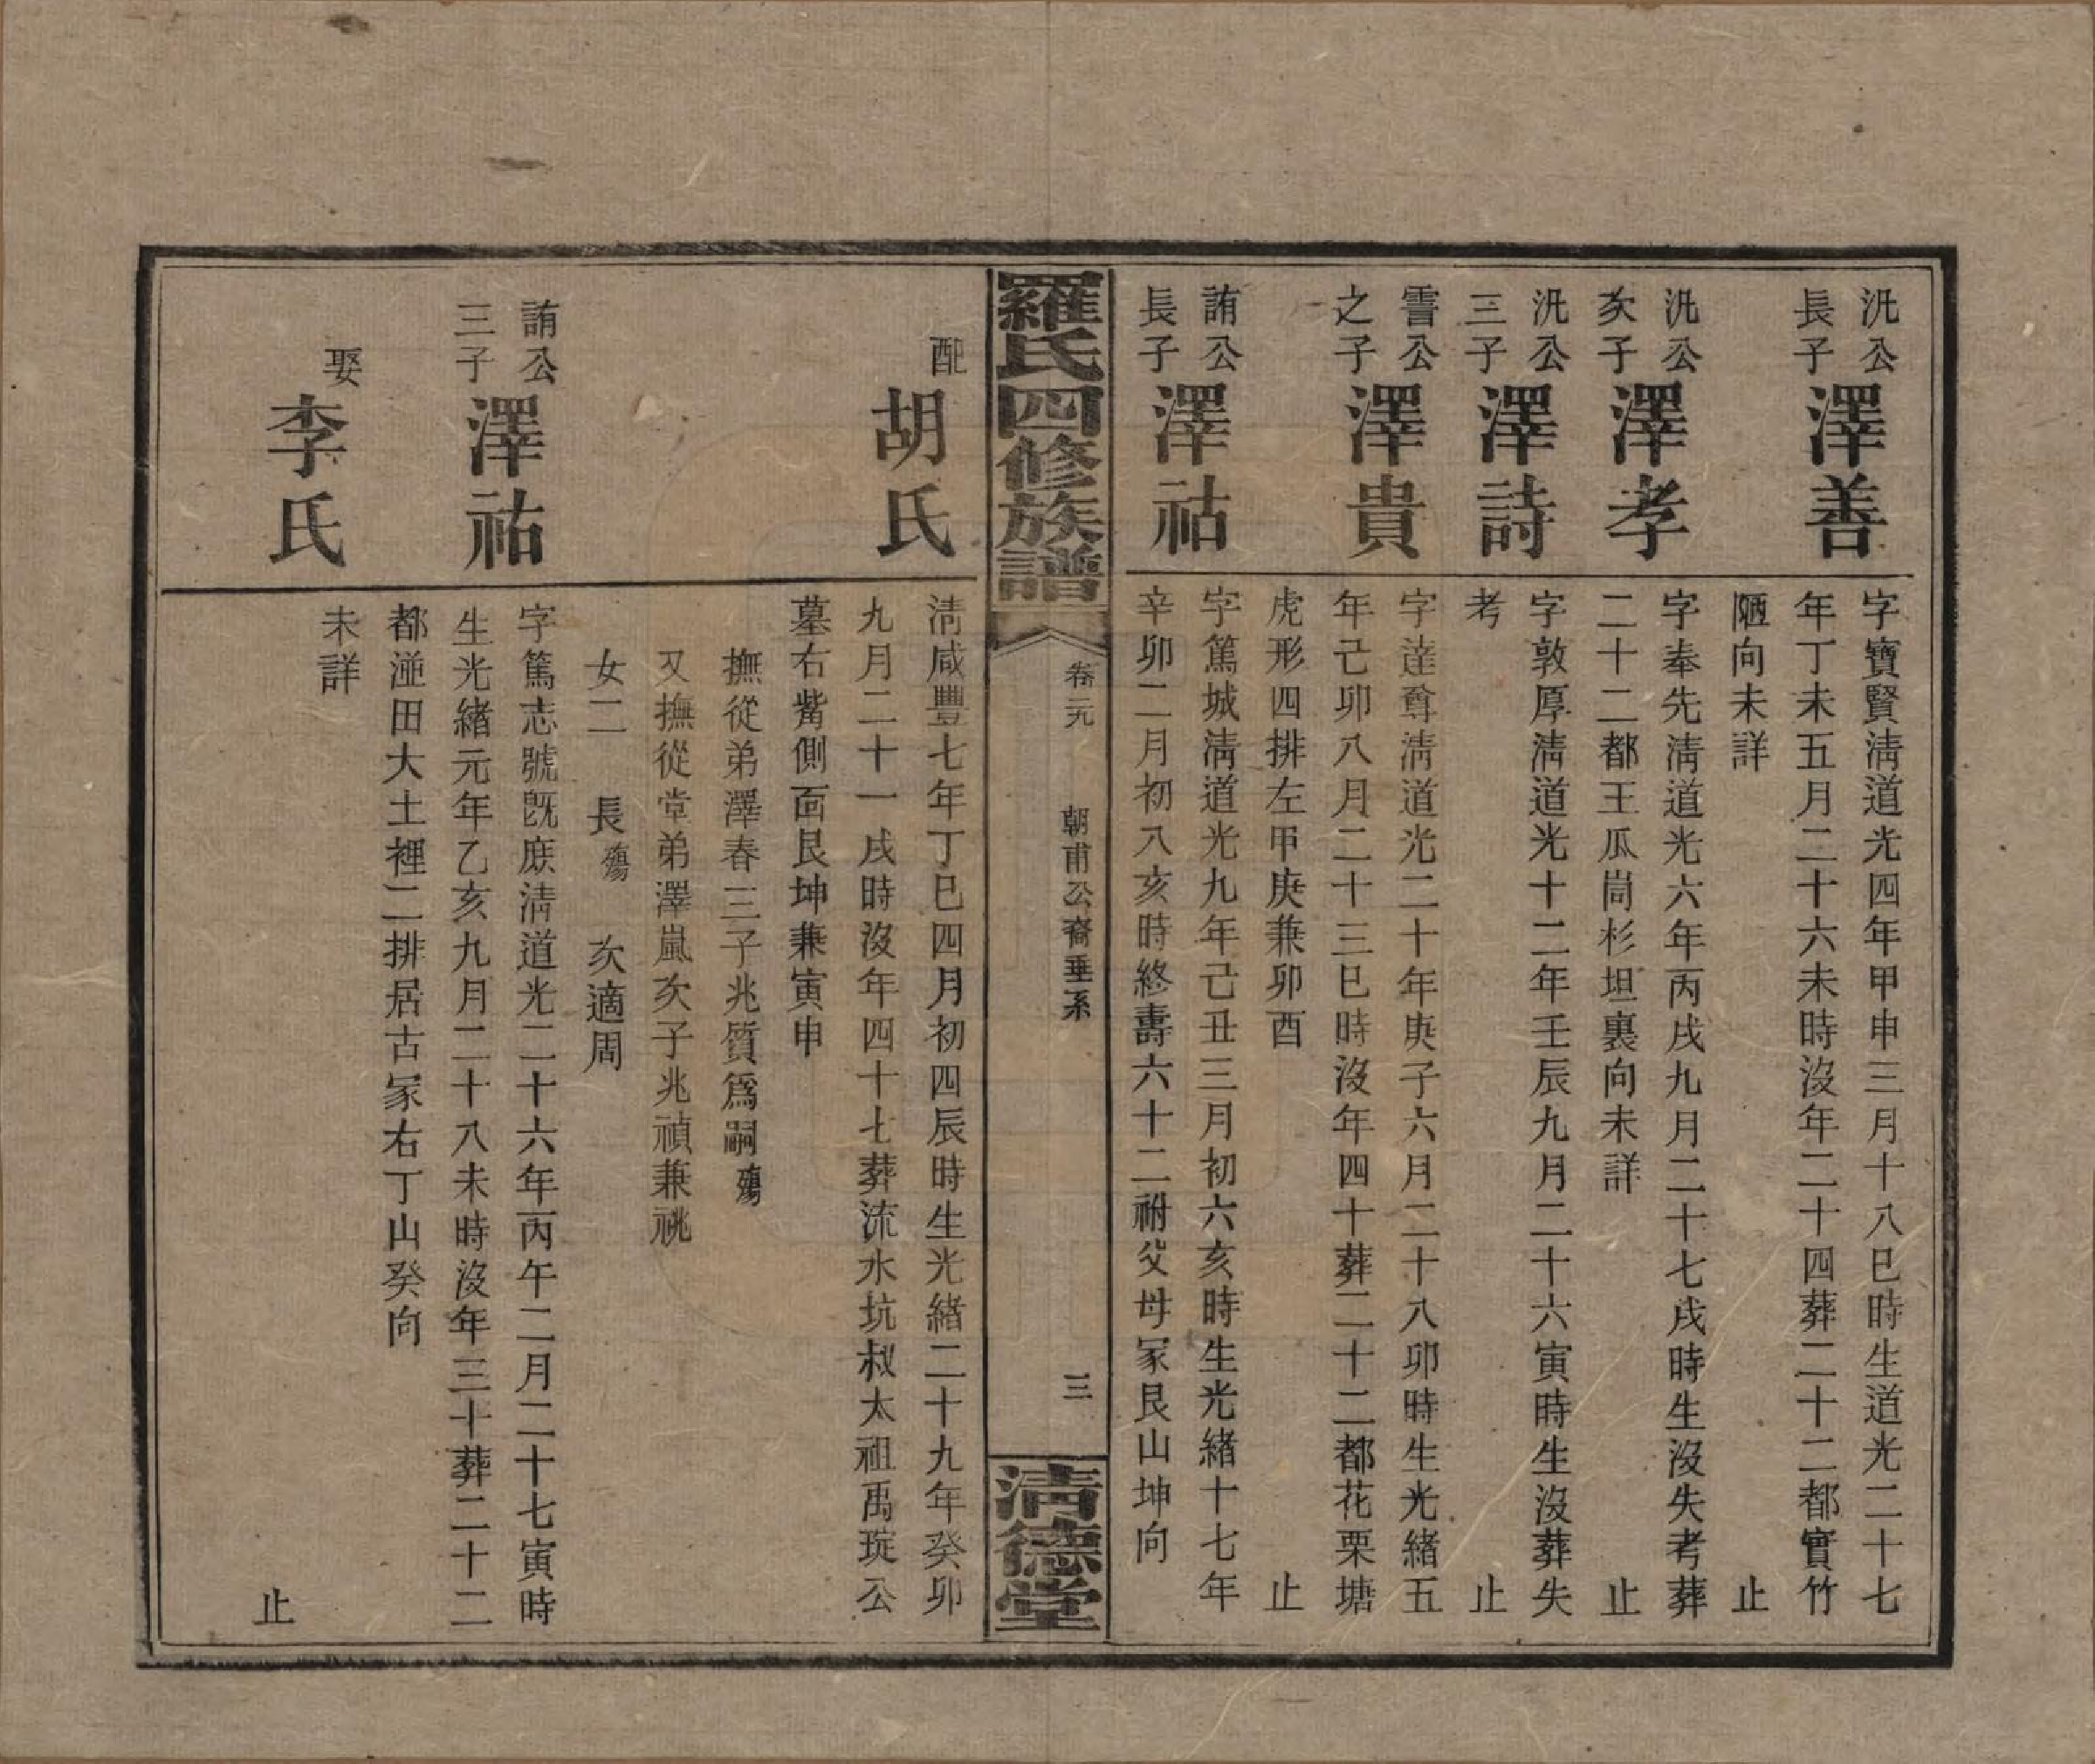 洗公
長子
澤善
字寶賢淸道光四年甲申三月十八巳時生道光二十七
年丁未五月二十六未時沒年二十四葬二十二都實竹
陋向未詳 止
洗公
次子
澤孝
字奉先淸道光六年丙戌九月二十七戌時生沒失考葬
二十二都王瓜崗杉坦裏向未詳 止
洗公
三子
澤詩
字敦厚淸道光十二年壬辰九月二十六寅時生沒葬失
考 止
霅公
之子
澤貴
字達尊淸道光二十年庚子六月二十八卯時生光緒五
年己卯八月二十三巳時沒年四十葬二十二都花栗塘
虎形四排左甲庚兼卯酉 止
詴公
長子
澤祜
字篤城淸道光九年己丑三月初六亥時生光緒十七年
辛卯二月初八亥時終壽六十二祔父母冢艮山坤向
羅氏四修族譜
卷元
朝甫公裔垂系
三
淸德堂
配
胡氏
淸咸豐七年丁巳四月初四辰時生光緒二十九年癸卯
九月二十一戌時沒年四十七葬流水坑叔太祖禹琁公
墓右觜側面艮坤兼寅申
撫從弟澤春三子兆質爲嗣殤
又撫從堂弟澤嵐次子兆禎兼祧
女二 長殤 次適周
詴公
三子
澤祐
字篤志號旣庶淸道光二十六年丙午二月二十七寅時
生光緒元年乙亥九月二十八未時沒年三十葬二十二
都湴田大土裡二排居古冢右丁山癸向
娶
李氏
未詳
止